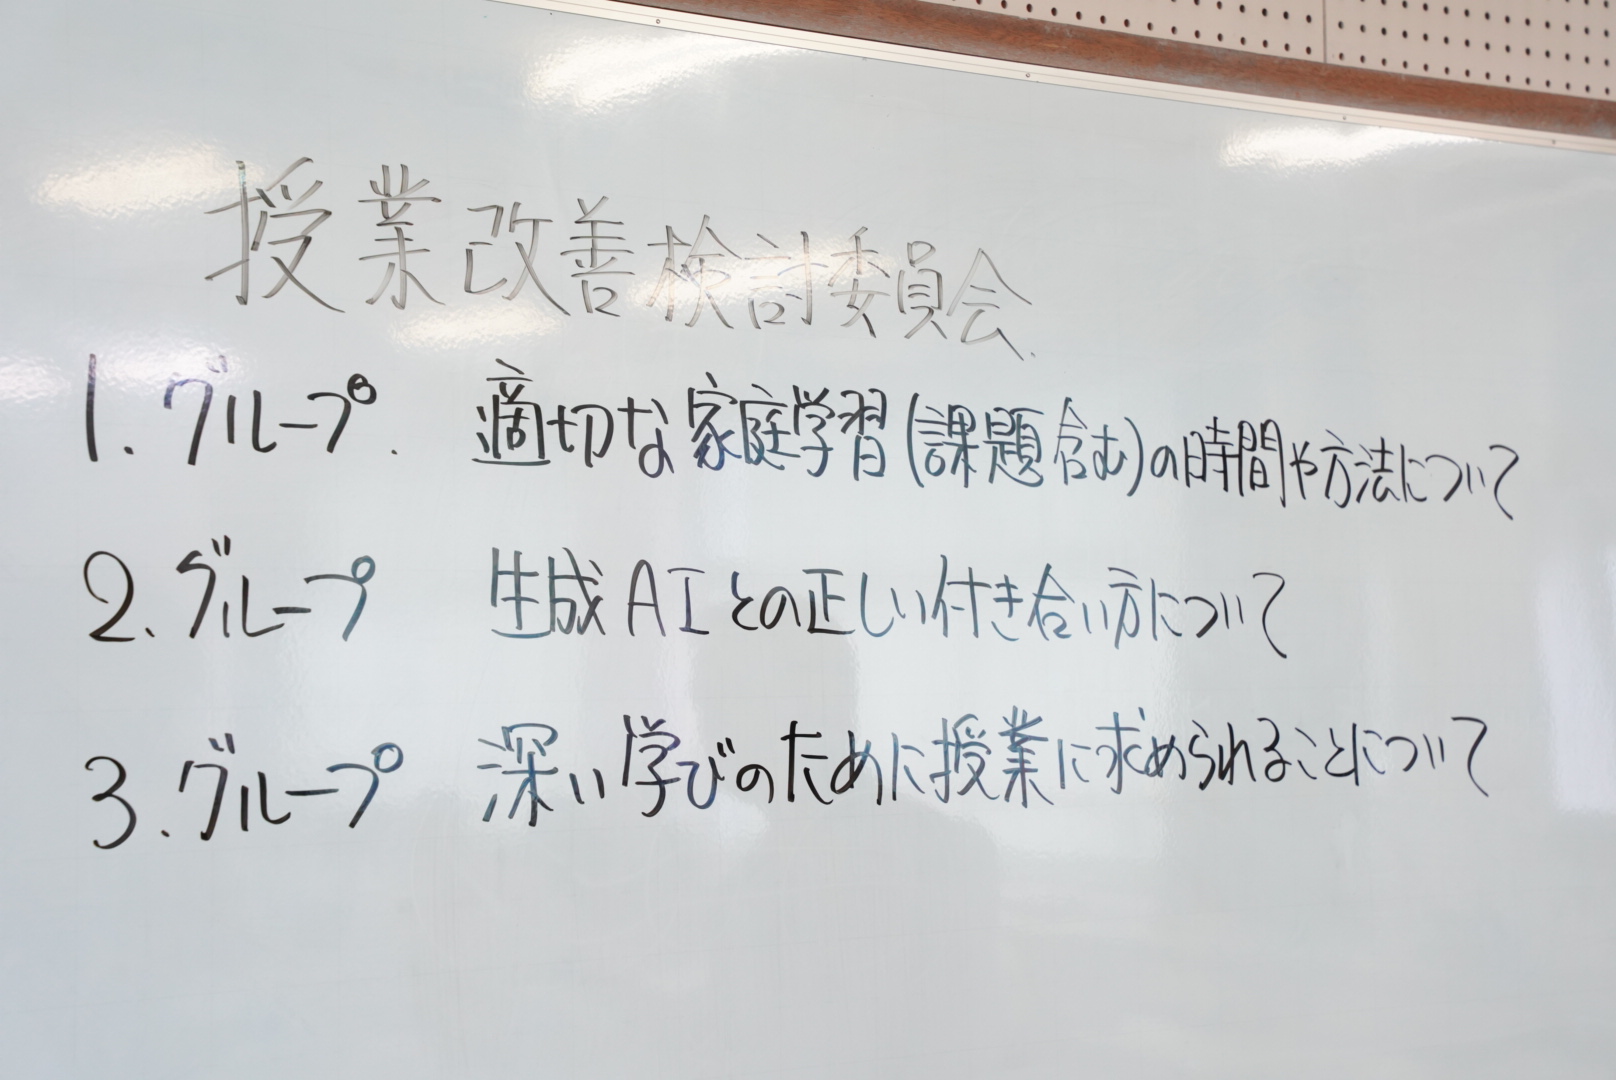 授業改善検討委員会.
1. グループ. 適切な家庭学習(課題含む)の時間や方法について
2. グループ 生成AIとの正しい付き合い方について
3. グループ 深い学びのために授業に求められることについて